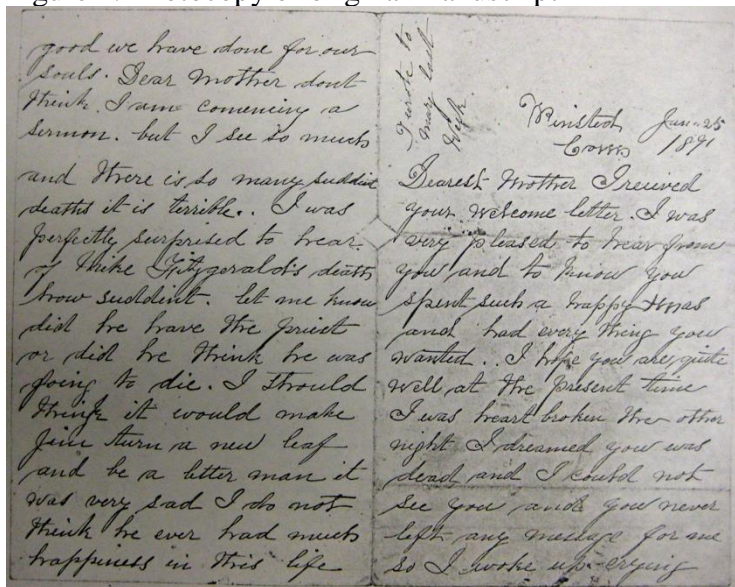 Photocopy of original manuscript
good we have done for our
souls. Dear Mother dont
think I am comencing a
sermon. but I see so much
and there is so many suddint
deaths it is terrible.. I was
perfectly surprised to hear
of Mike Fitzgerald's death
how suddint. let me know
did he have the priest
or did he think he was
going to die. I should
think it would make
Jim turn a new leaf
and be a better man it
was very sad I do not
think he ever had much
happiness in this life
I wrote to
Mary last
Winsted Jan-25
Conn 1891
Dearest Mother I recived
your welcome letter. I was
very pleased to hear from
you and to know you
spent such a happy Xmas
and had every thing you
wanted.. I hope you are quite
well at the present time
I was heart broken the other
night I dreamed you was
dead and I could not
see you and you never
left any message for me
so I woke up crying